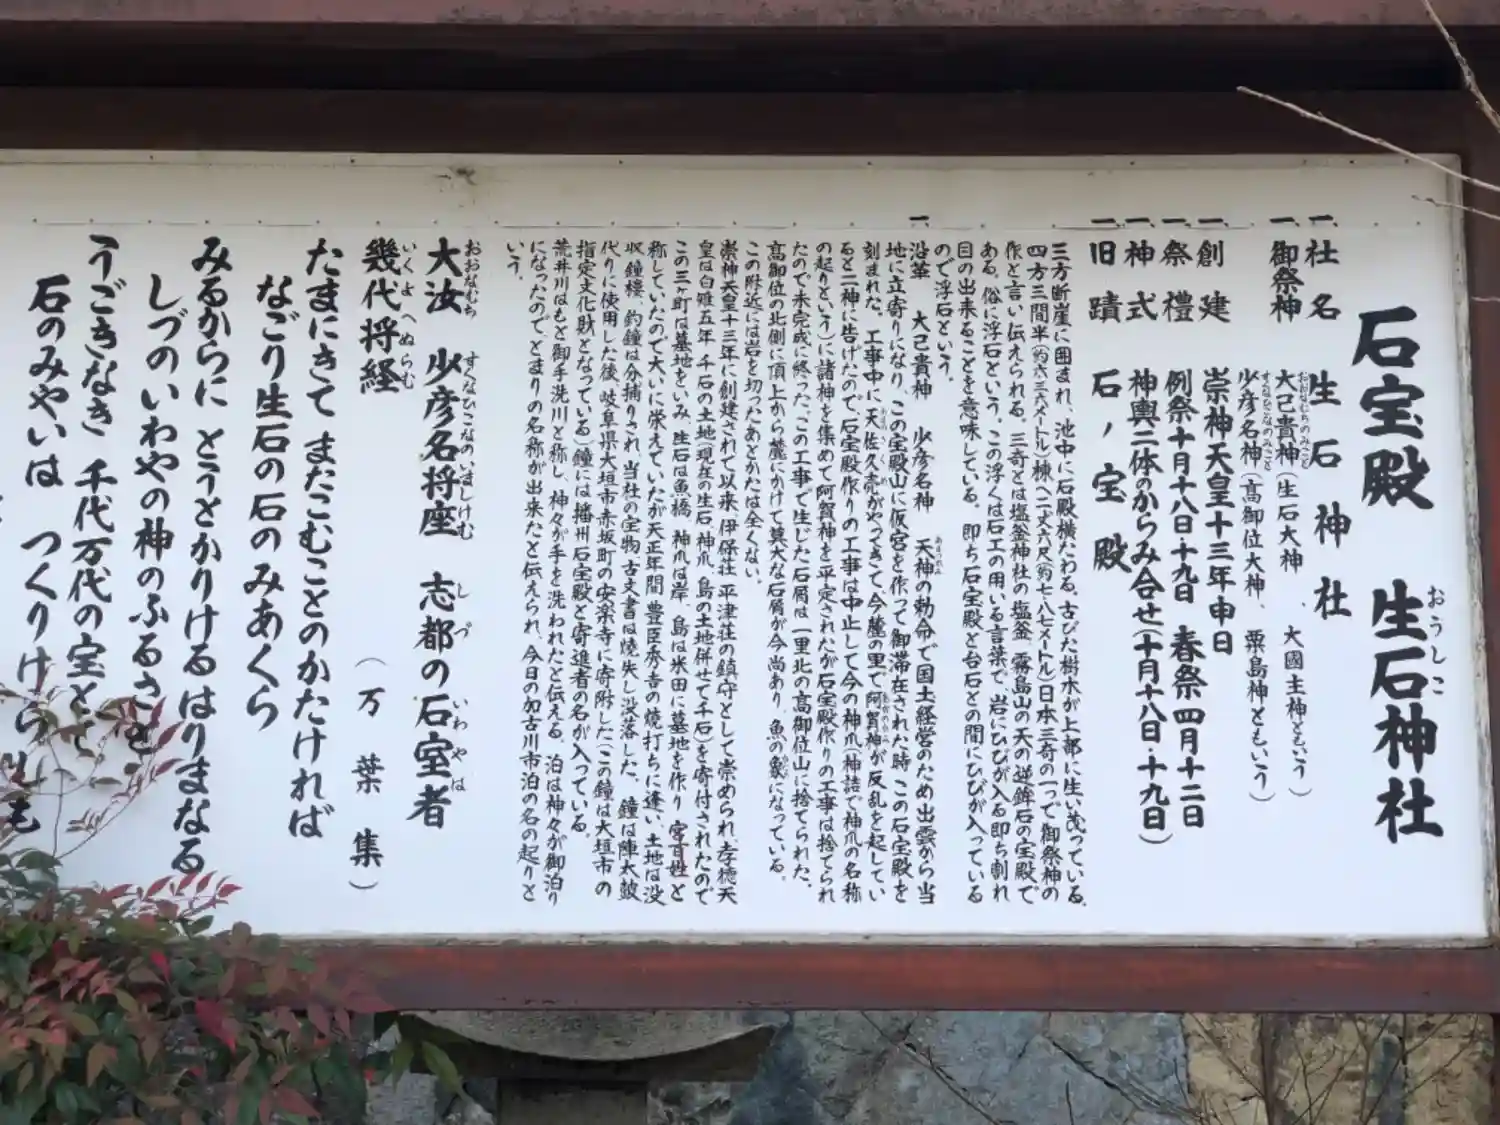 石宝殿 生石神社
おうしこ
一、社名 生石神社
一、御祭神 大己貴神(生石大神、大國主神ともいう)
おおなむちのみこと
少彦名神(高御位大神、粟島神ともいう)
すくなひこなのみこと
一、創建 崇神天皇十三年申日
一、祭禮 例祭十月十八日・十九日 春祭四月十二日
一、神式 神輿二体のからみ合せ(十月十八日・十九日)
一、旧蹟 石ノ宝殿
三方断崖に囲まれ、池中に石殿横たわる。古びた樹木が上部に生い茂っている。
四方三間半(約六・三六メートル)棟へ二丈六尺(約七・八七メートル)日本三奇の一つで御祭神の
作と言い伝えられる。三奇とは塩釜神社の塩釜、霧島山の天の逆鉾石の宝殿で
ある。俗に浮石という。この浮くは石工の用いる言葉で、岩にひびが入る即ち割れ
目の出来ることを意味している。即ち石宝殿と台石との間にひびが入っている
ので浮石という。
一、沿革 大己貴神 少彦名神 天神の勅命で国土経営のため出雲から当
地に立寄りになり、この宝殿山に仮宮を作って御滞在された時、この石宝殿を
刻まれた。工事中に天佐久売がやってきて、今麓の里で阿賀神が反乱を起してい
ると二神に告げたので、石宝殿作りの工事は中止して今の神爪(神詰で神爪の名称
の起りという)に諸神を集めて阿賀神を平定されたが石宝殿作りの工事は捨てられ
たので未完成に終った。この工事で生じた石屑は一里北の高御位山に捨てられた。
高御位の北側に頂上から麓にかけて莫大な石屑が今尚あり、魚の象になっている。
この附近には岩を切ったあとかたは全くない。
崇神天皇十三年に創建されて以来、伊保荘、平津荘の鎮守として崇められ、孝徳天
皇は白雉五年 千石の土地(現在の生石、神爪、島の土地併せて千石)を寄付されたので
この三ヶ町は墓地をいみ、生石は魚橋、神爪は岸、島は米田に墓地を作り 宮百姓と
称していたので大いに栄えていたが天正年間 豊臣秀吉の焼打ちに逢い、土地は没
収、鐘楼、釣鐘は分捕りされ、当社の宝物、古文書は焼失し没落した。鐘は陣太鼓
代りに使用した後、岐阜県大垣市赤坂町の安楽寺に寄附した(この鐘は大垣市の
指定文化財となっている)鐘には播州石宝殿と寄進者の名が入っている。
荒井川はもと御手洗川と称し、神々が手を洗われたと伝える。泊は神々が御泊り
になったので、とまりの名称が出来たと伝えられ、今日の加古川市泊の名の起りと
いう。
大汝 少彦名将座 志都の石室者
おおなむち すくなひこなのいましけむ しづ いわやは
幾代将経
いくよへぬらむ
(万葉集)
たまにきて またこむことのかたければ
なごり生石の石のみあくら
みるからに とうとかりける はりまなる
しづのいわやの神のふるさと
うごきなき 千代万代の宝とて
石のみやいは つくりけらしも